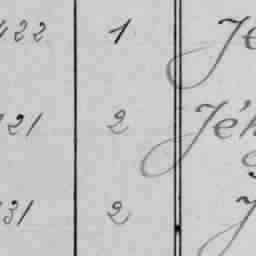 422 1 Je
121 2 Jéh
131 2 J